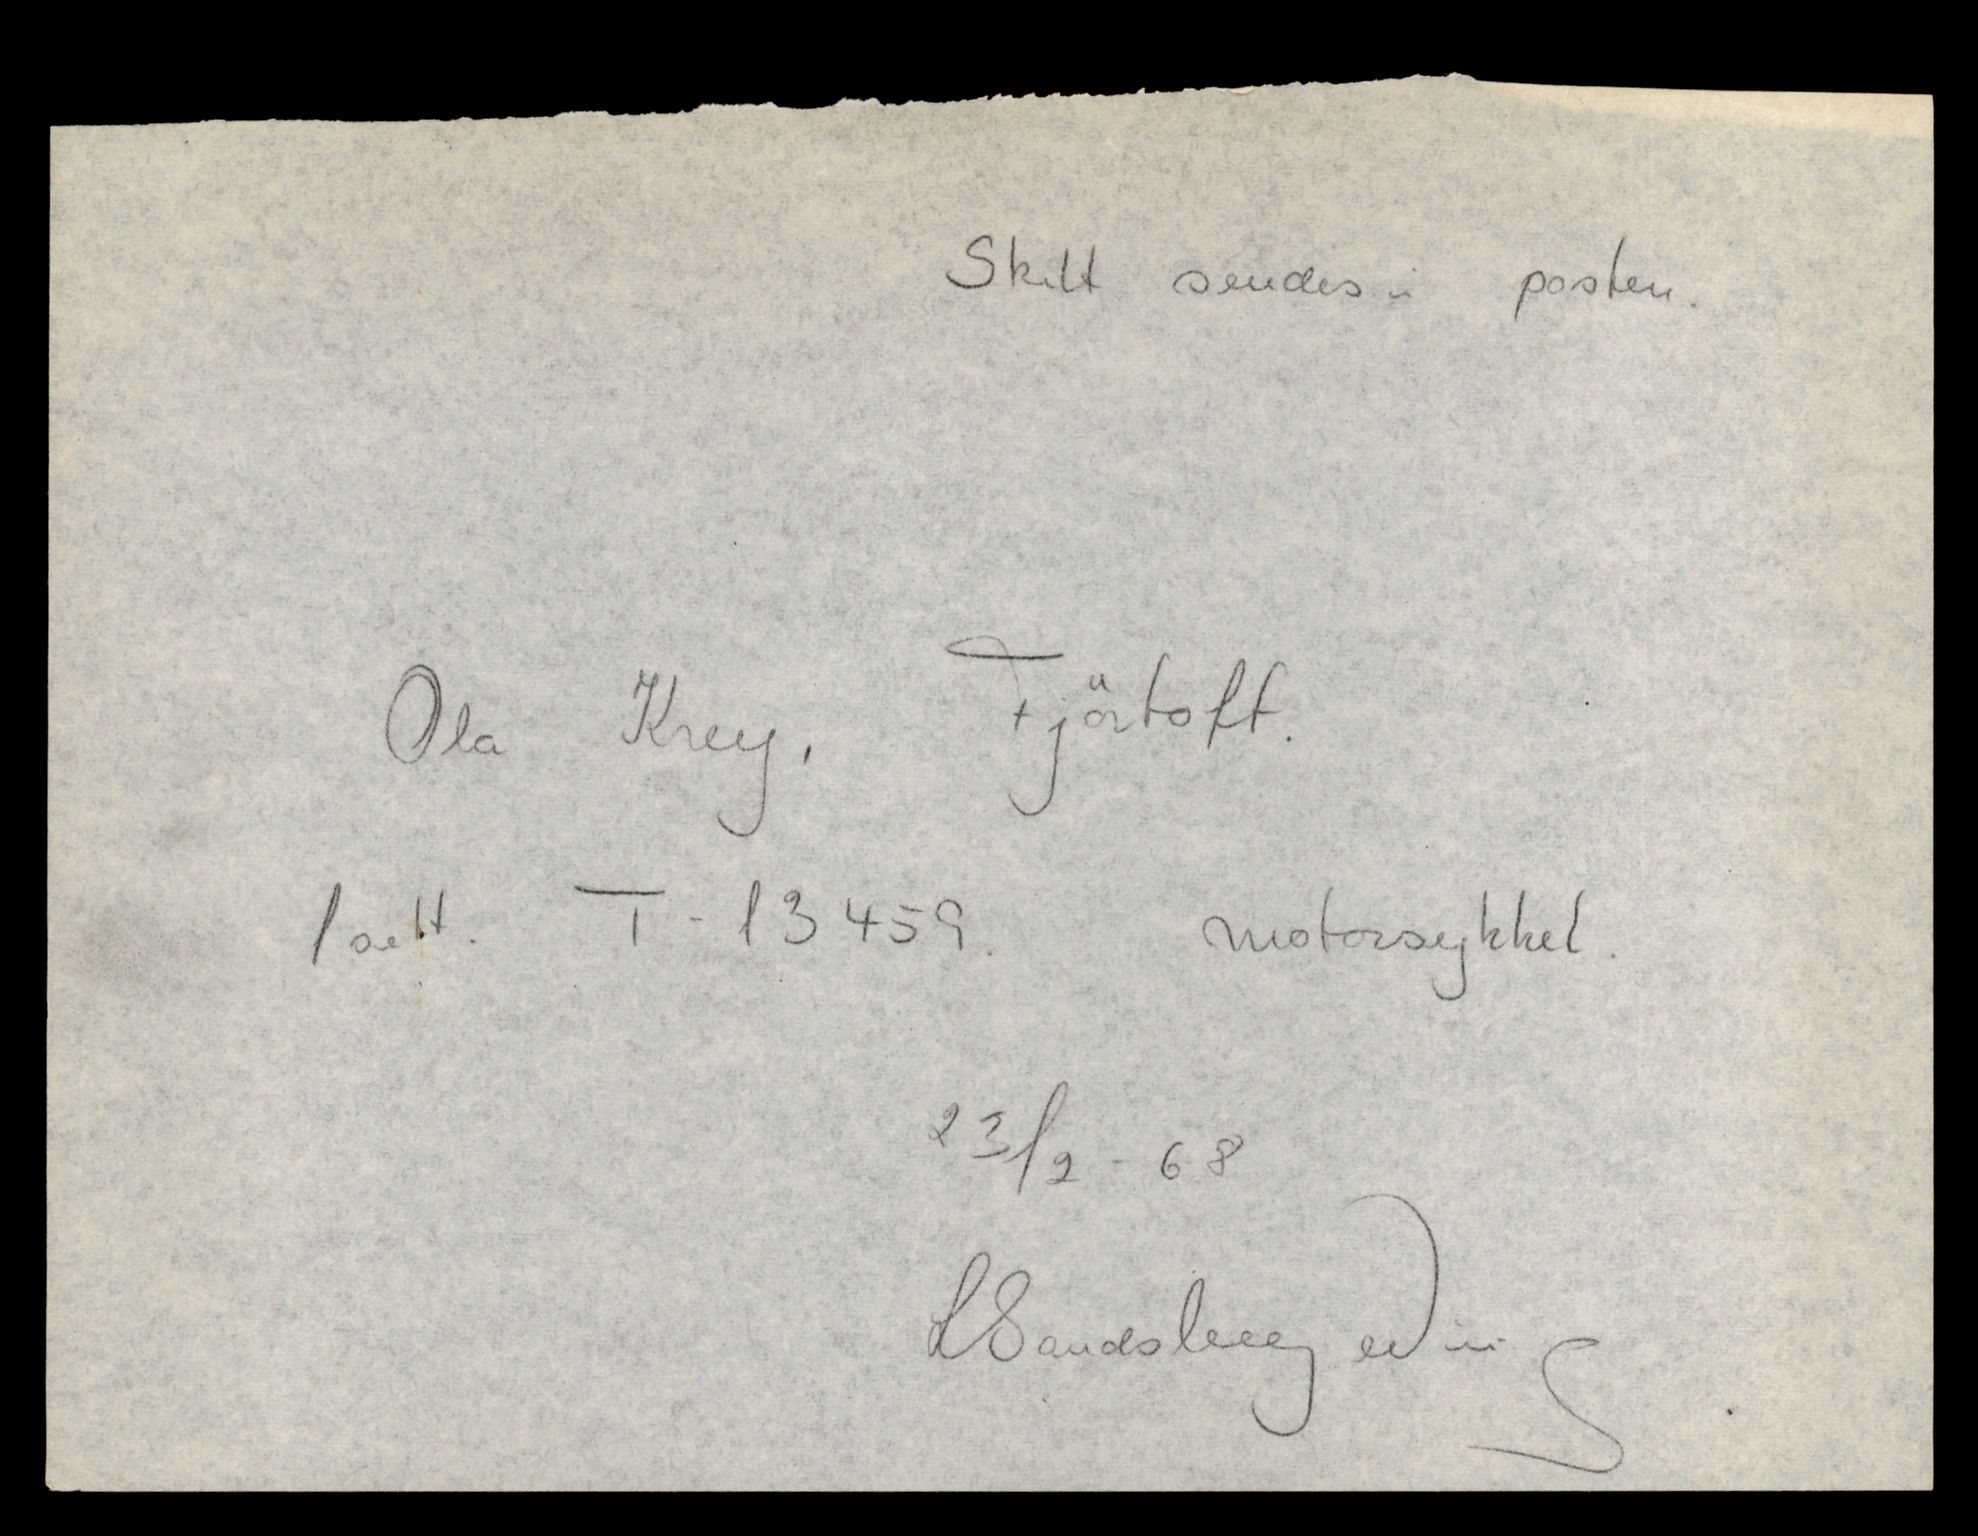 Skilt sendes i posten.
Ola Krey, Fjörtoft.
1 sett. T-13459. motorsykkel.
23/2-68